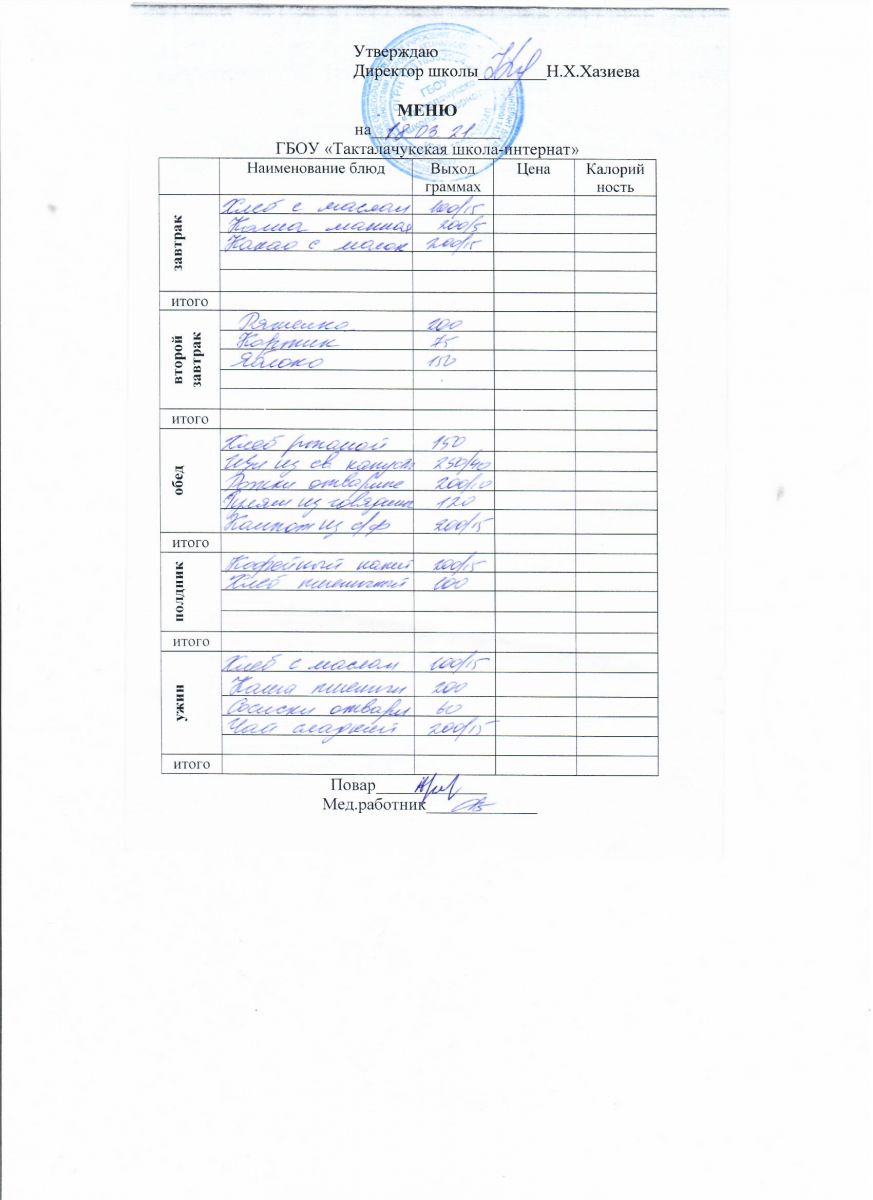 Утверждаю
Директор школы________Н.Х.Хазиева
ГБОУ
МЕНЮ
на 18 03 21
ГБОУ «Такталачукская школа-интернат»
Наименование блюд Выход граммах Цена Калорий ность
завтрак
Хлеб с маслом 100/15
Каша манная 200/5
Какао с молок 200/15
итого
второй завтрак
Ряженка 200
Коржик 75
Яблоко 150
итого
обед
Хлеб ржаной 150
Щи из св капуст 250/40
Рожки отварные 200/10
из говядин 120
Компот из с/ф 200/15
итого
полдник
Кофейный напит 200/15
Хлеб пшеничный 100
итого
ужин
Хлеб с маслом 100/15
Каша пшенич 200
Сосиски отварн 60
Чай сладкий 200/15
итого
Повар____________
Мед.работник____________